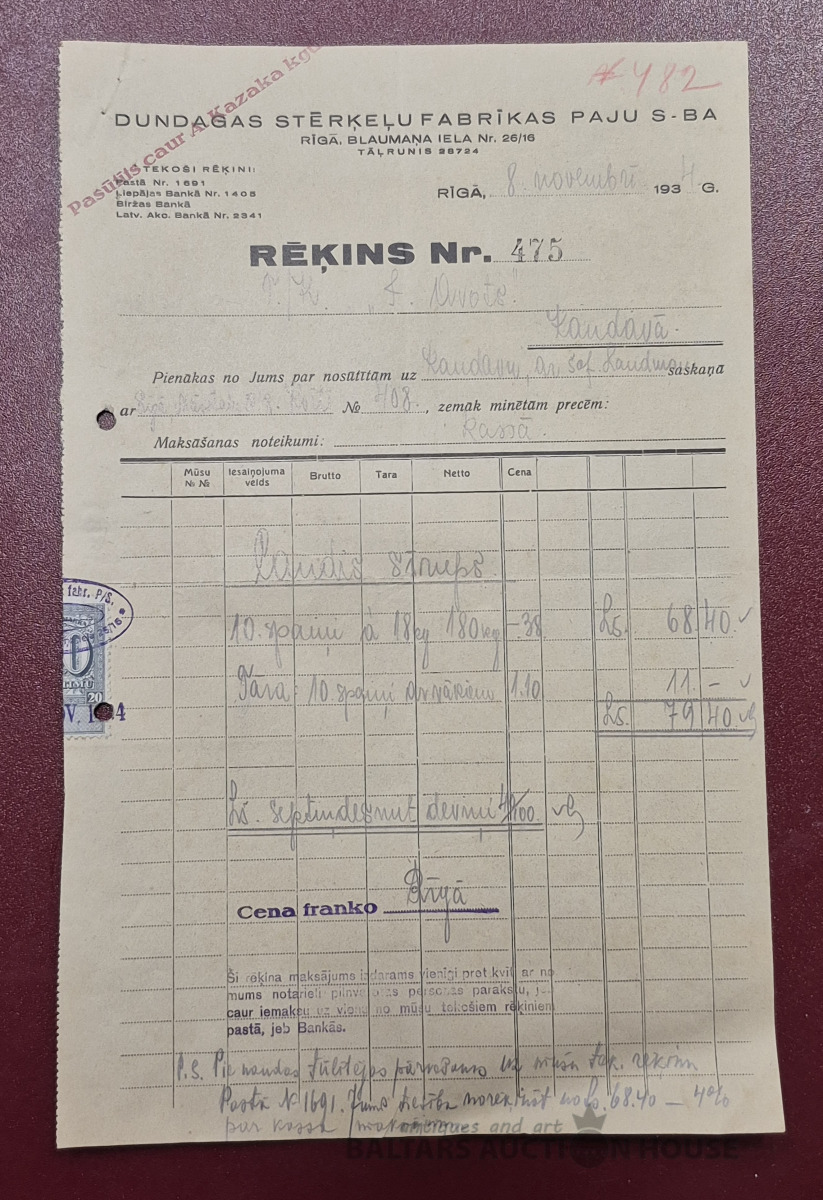 Pasūtīts caur A. Kazaka kgu
№ 482
DUNDAGAS STĒRĶEĻU FABRĪKAS PAJU S-BA
RĪGĀ, BLAUMAŅA IELA Nr. 26/16
TĀĻRUNIS 28724
TEKOŠI RĒĶINI:
Pastā Nr. 1691
Liepājas Bankā Nr. 1405
Biržas Bankā
Latv. Ako. Bankā Nr. 2341
RĪGĀ, 8. novembrī 1934 G.
RĒĶINS Nr. 475
Kandavā.
Pienākas no Jums par nosūtītām uz Kandavu, ar šof. Landman saskaņā
ar № 408., zemāk minētām precēm:
Maksāšanas noteikumi: Kassā.
Mūsu №№ Iesaiņojuma veids Brutto Tara Netto Cena
Kandis sīrups
10. spaiņi à 18 kg 180 kg -.38 Ls. 68 40.
Tara: 10. spaiņi ar vākiem 1.10 11. -
Ls. 79 40.
Ls. septiņdesmit deviņi 40/100.
fabr. P/S.
26/16
20
Cena franko Rīgā
Ši rēķina maksājums izdarams vienīgi pret kvīti ar no
mums notarieli pilnvarotas personas parakstu,
caur iemaksu uz vienu no mūsu tekošiem rēķiniem
pastā, jeb Bankās.
P.S. Pie naudas tūlītējas pārvešanas uz mūsu tek. rēķinu
Pastā № 1691. Jums tiesība norēķināt no Ls. 68.40 — 4%
par kassa
antiques and art
BALTARS AUCTION HOUSE